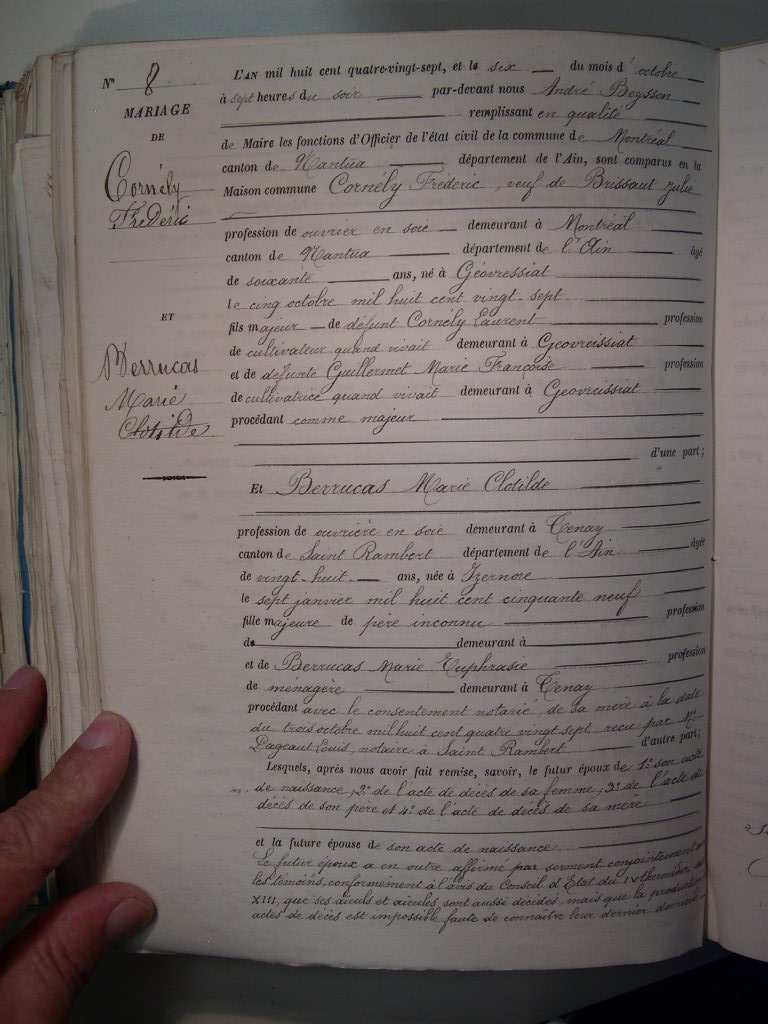 N° 8
MARIAGE
DE
Cornély
Frédéric
ET
Berrucas
Marie
Clotilde
L'AN mil huit cent quatre-vingt-sept, et le six du mois d'octobre
à sept heures du soir par-devant nous André Beysson
remplissant en qualité
de Maire les fonctions d'Officier de l'état civil de la commune de Montréal
canton de Nantua département de l'Ain, sont comparus en la
Maison commune Cornély Frédéric, veuf de Brissaut Julie
profession de ouvrier en soie demeurant à Montréal
canton de Nantua département de l'Ain âgé
de soixante ans, né à Géovressiat
le cinq octobre mil huit cent vingt-sept
fils majeur de défunt Cornély Laurent profession
de cultivateur quand vivait demeurant à Geovreissiat
et de défunte Guillermet Marie Françoise profession
de cultivatrice quand vivait demeurant à Geovreissiat
procédant comme majeur
d'une part;
Et Berrucas Marie Clotilde
profession de ouvrière en soie demeurant à Tenay
canton de Saint Rambert département de l'Ain âgée
de vingt-huit ans, née à Izernore
le sept janvier mil huit cent cinquante neuf
fille majeure de père inconnu profession
de demeurant à
et de Berrucas Marie Euphrasie profession
de ménagère demeurant à Tenay
procédant avec le consentement notarié de sa mère à la date
du trois octobre mil huit cent quatre vingt sept reçu par Me
Pageaut Louis, notaire à Saint Rambert d'autre part;
Lesquels, après nous avoir fait remise, savoir, le futur époux de 1° son acte
de naissance, 2° de l'acte de décès de sa femme, 3° de l'acte de
décès de son père et 4° de l'acte de décès de sa mère
et la future épouse de son acte de naissance.
Le futur époux a en outre affirmé par serment conjointement
les témoins, conformément à l'avis du Conseil d'Etat du IV thermidor
XIII, que ses aïeuls et aïeules sont aussi décédés, mais que la production
actes de décès est impossible faute de connaître leur dernier